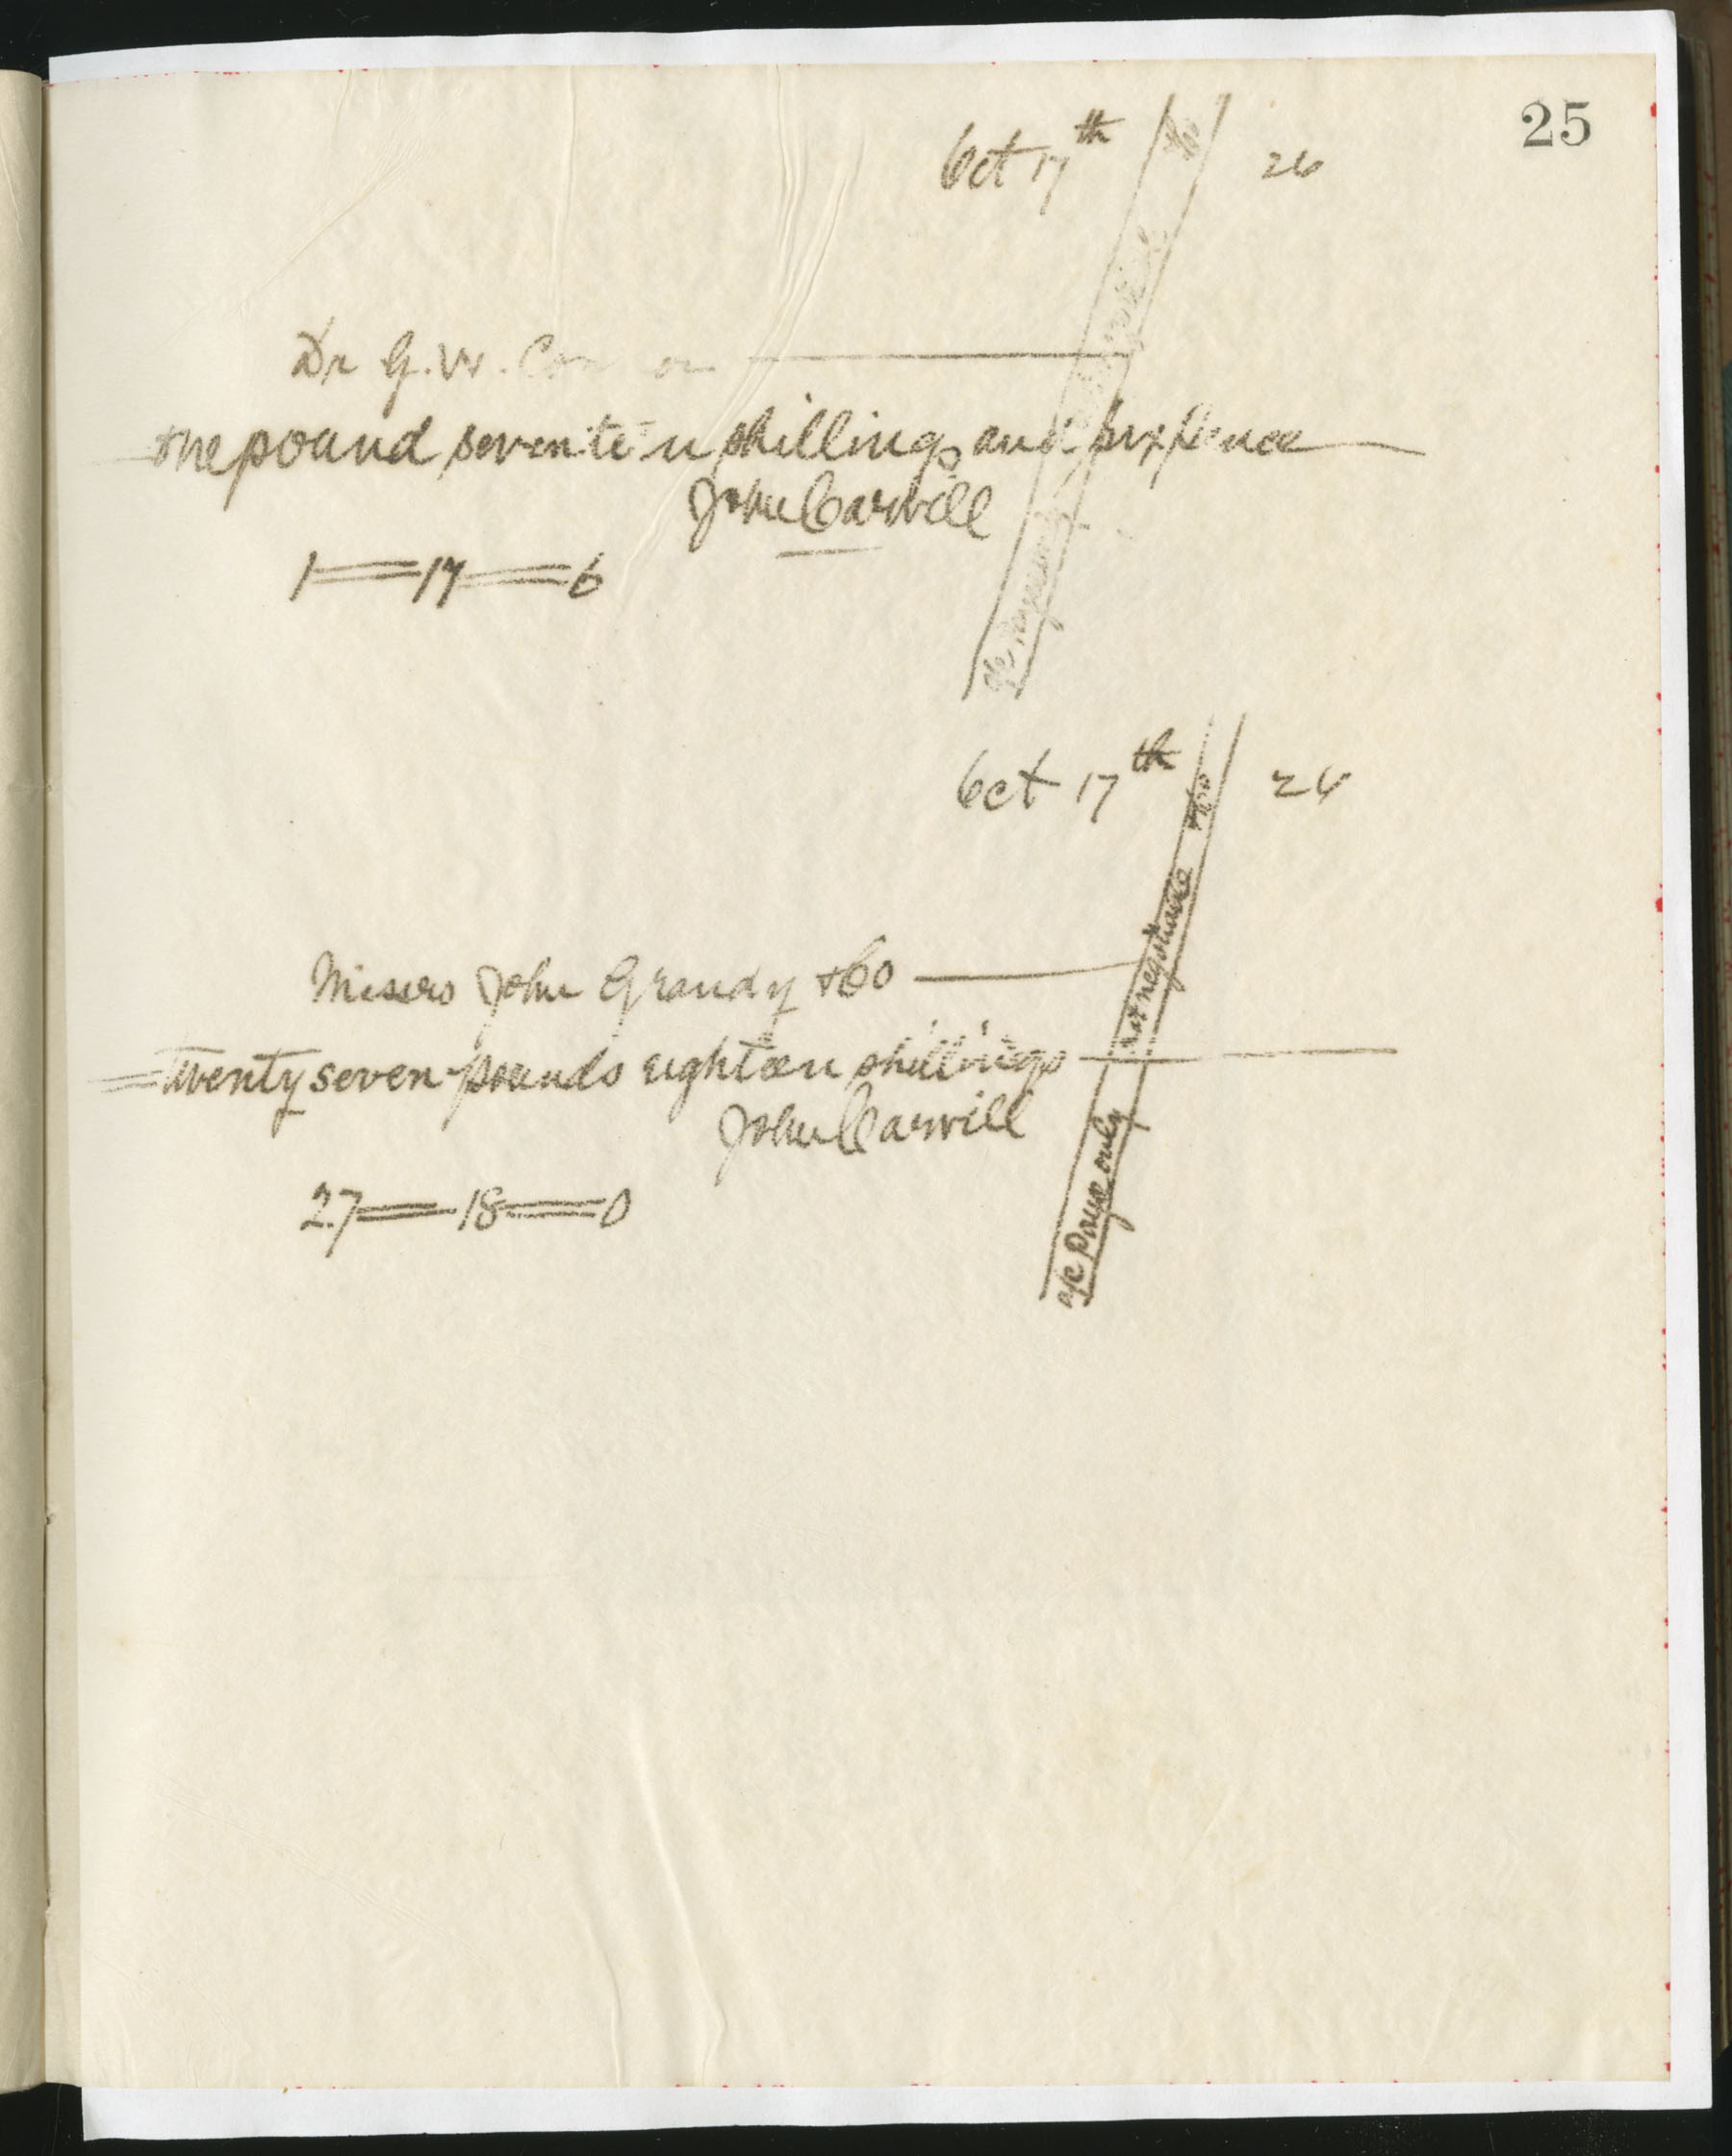 25
Oct 17th 26
Dr G. W.
one pound seventeen shillings and sixpence
John Carvill
1 = 17 = 6
a/c Payee
Oct 17th 26
& Co
not negotiable
a/c Payee only
Messrs John Grandy & Co
Twenty seven pounds eighteen shillings
John Carvill
27 = 18 = 0